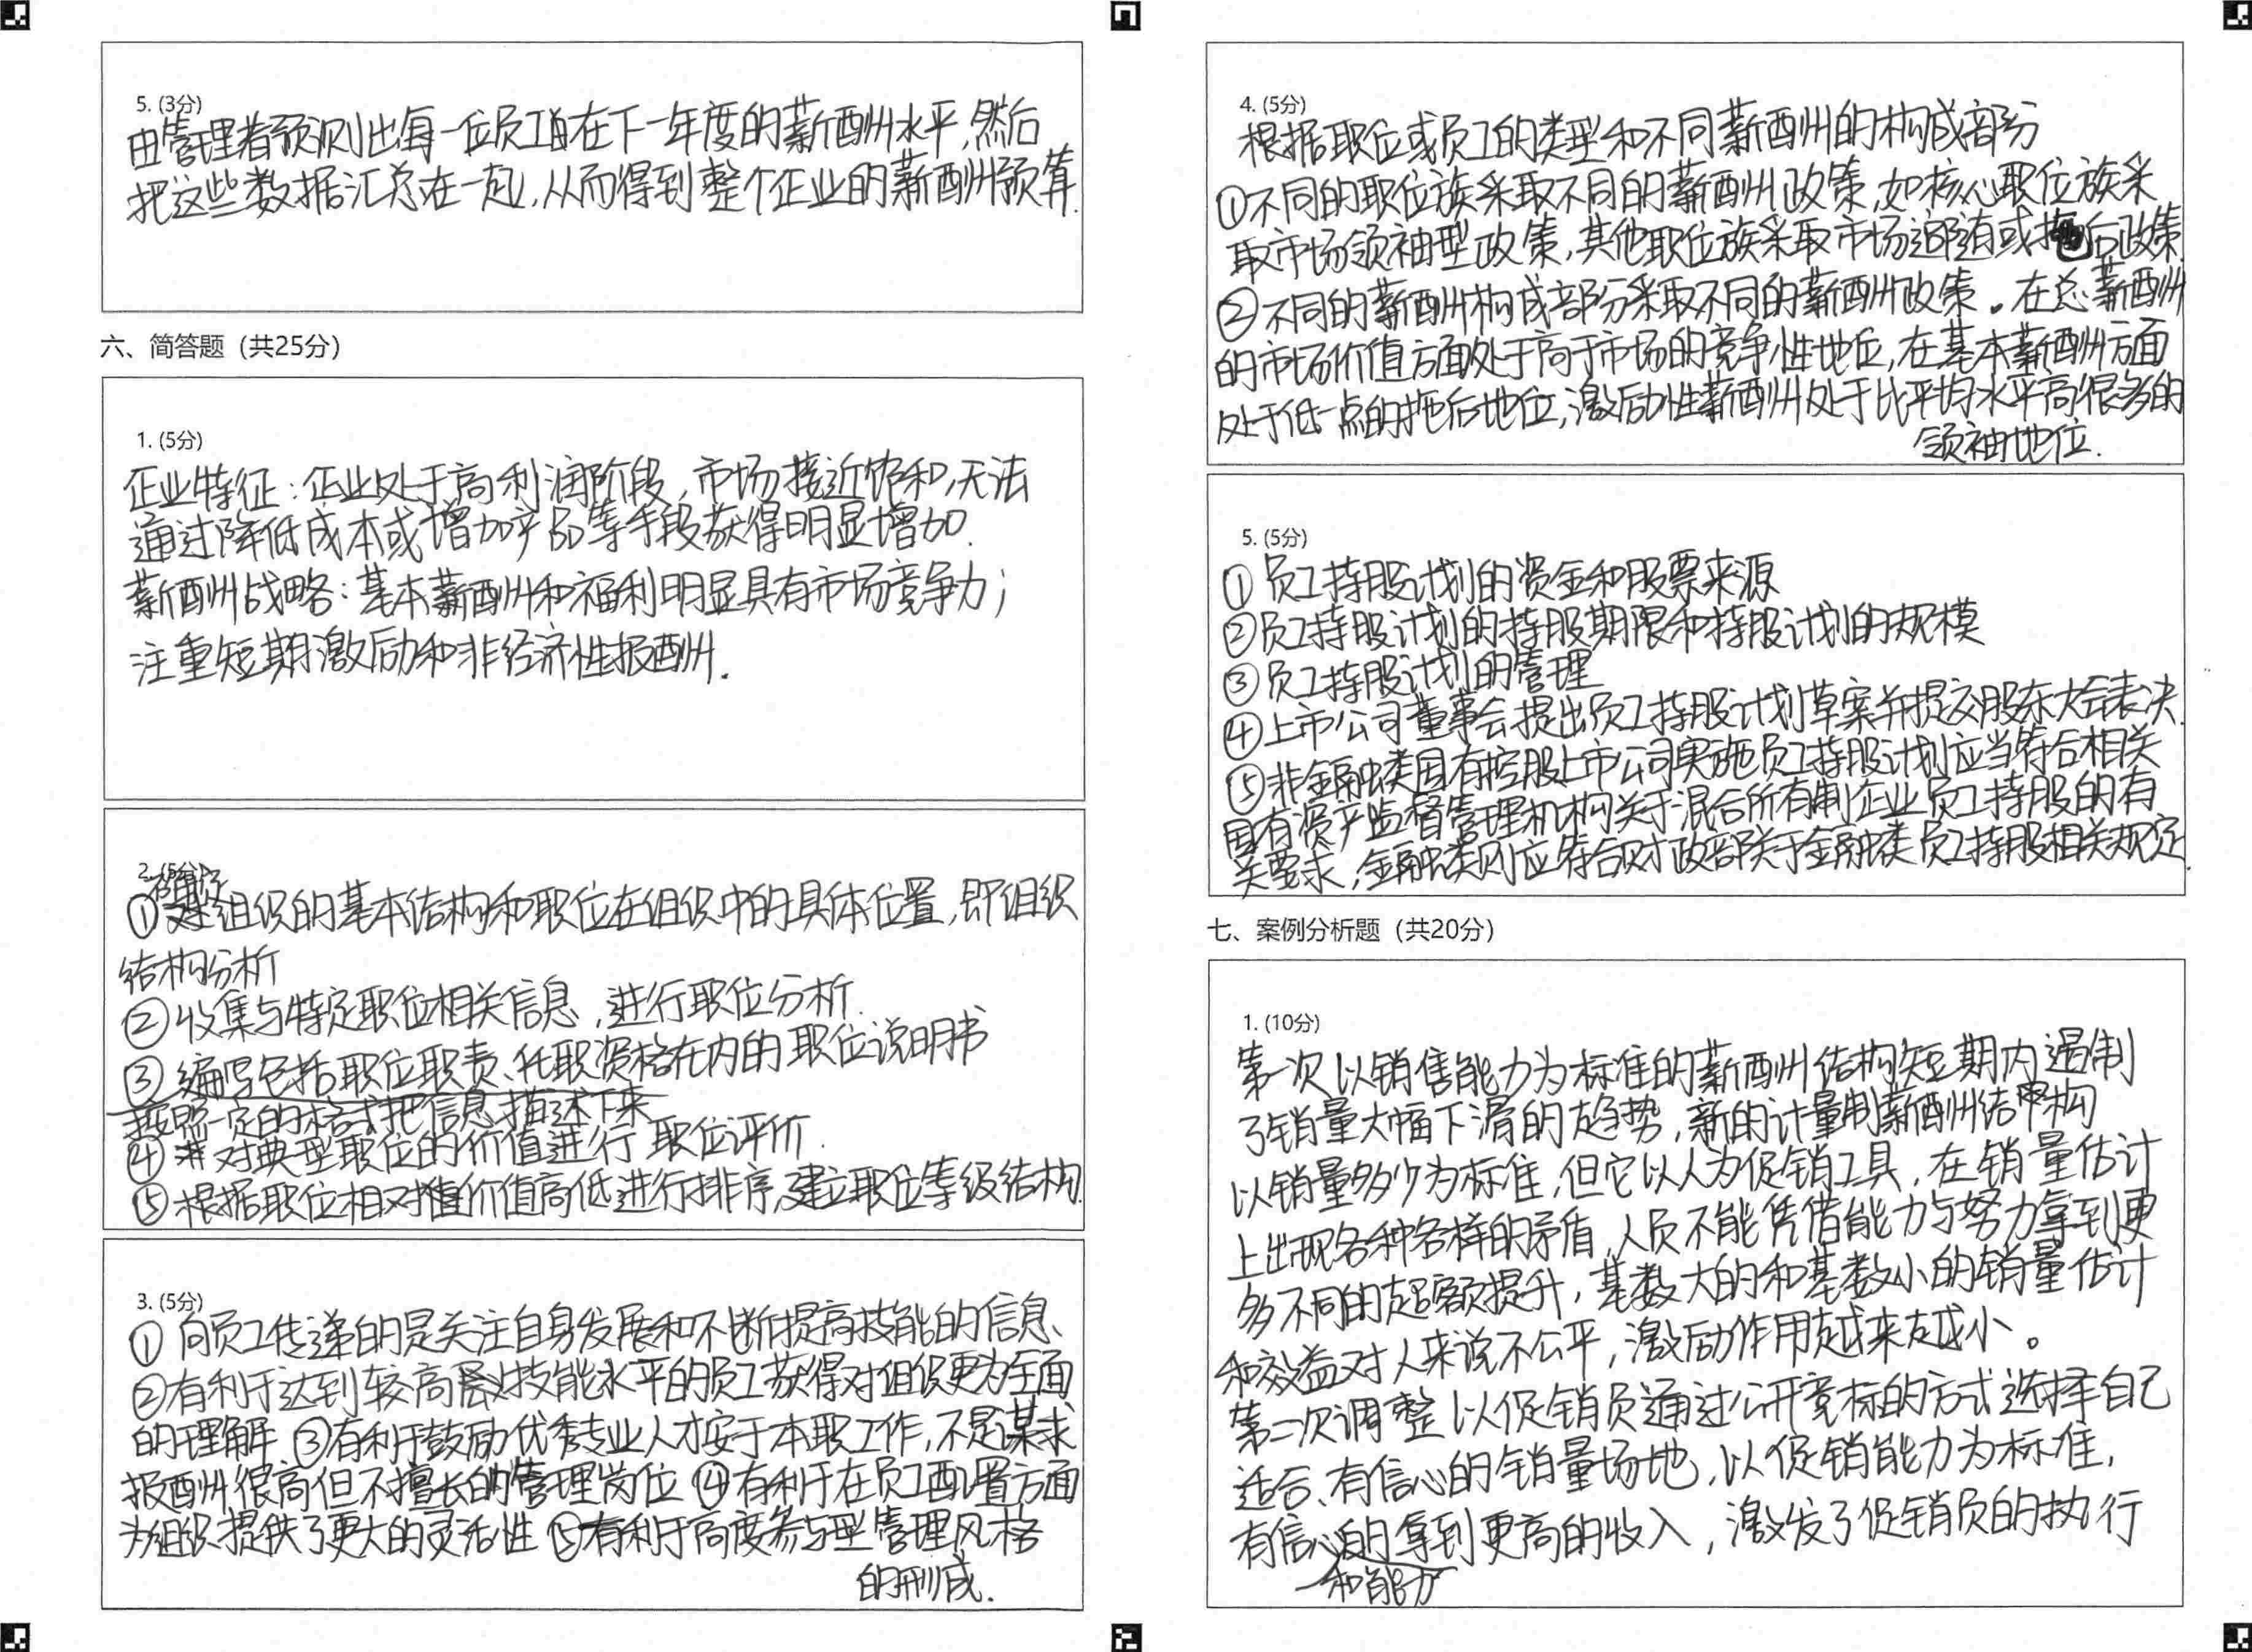 5. (3分)
由管理者预测出每一位员工在下一年度的薪酬水平,然后
把这些数据汇总在一起,从而得到整个企业的薪酬预算.
六、简答题（共25分）
1. (5分)
企业特征:企业处于高利润阶段,市场接近饱和,无法
通过降低成本或增加产品等手段获得明显增加.
薪酬战略:基本薪酬和福利明显具有市场竞争力;
注重短期激励和非经济性报酬.
2. (5分)
①组织的基本结构和职位在组织中的具体位置,即组织
结构分析
②收集与特定职位相关信息,进行职位分析.
③编写包括职位职责、任职资格在内的职位说明书
按照一定的格式把信息描述下来
④对典型职位的价值进行职位评价.
⑤根据职位相对价值高低进行排序,建立职位等级结构.
3. (5分)
①向员工传递的是关注自身发展和不断提高技能的信息、
②有利于达到较高技能水平的员工获得对组织更为全面
的理解 ③有利于鼓励优秀专业人才安于本职工作,不是谋求
报酬很高但不擅长的管理岗位 ④有利于在员工配置方面
为组织提供了更大的灵活性 ⑤有利于高度参与型管理风格
的形成.
4. (5分)
根据职位或员工的类型和不同薪酬的构成部分
①不同的职位族采取不同的薪酬政策,如核心职位族采
取市场领袖型政策,其他职位族采取市场追随或拖后政策.
②不同的薪酬构成部分采取不同的薪酬政策。在总薪酬
的市场价值方面处于高于市场的竞争性地位,在基本薪酬方面
处于低一点的拖后地位,激励性薪酬处于比平均水平高很多的
领袖地位.
5. (5分)
①员工持股计划的资金和股票来源
②员工持股计划的持股期限和持股计划的规模
③员工持股计划的管理
④上市公司董事会提出员工持股计划草案并提交股东大会表决.
⑤非金融类国有控股上市公司实施员工持股计划应当符合相关
国有资产监督管理机构关于混合所有制企业员工持股的有
关要求,金融类则应符合财政部关于金融类员工持股相关规定.
七、案例分析题（共20分）
1. (10分)
第一次以销售能力为标准的薪酬结构短期内遏制
了销量大幅下滑的趋势,新的计量制薪酬结构
以销量多少为标准,但它以人为促销工具,在销量估计
上出现各种各样的矛盾,人员不能凭借能力与努力拿到更
多不同的超额提升,基数大的和基数小的销量估计
和效益对人来说不公平,激励作用越来越小。
第二次调整以促销员通过公开竞标的方式选择自己
适合、有信心的销量场地,以促销能力为标准,
有信心的拿到更高的收入,激发了促销员的执行
和能力